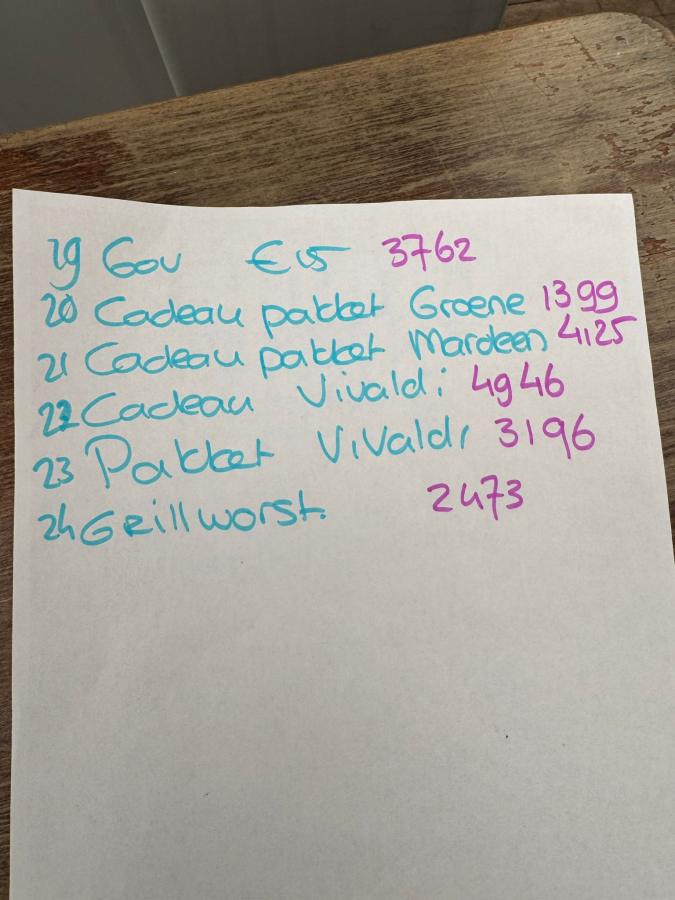 19 Gov €15 3762
20 Cadeau pakket Groene 1399
21 Cadeau pakket Mardeen 4125
22 Cadeau Vivaldi 4946
23 Pakket Vivaldi 3196
24 Grillworst. 2473